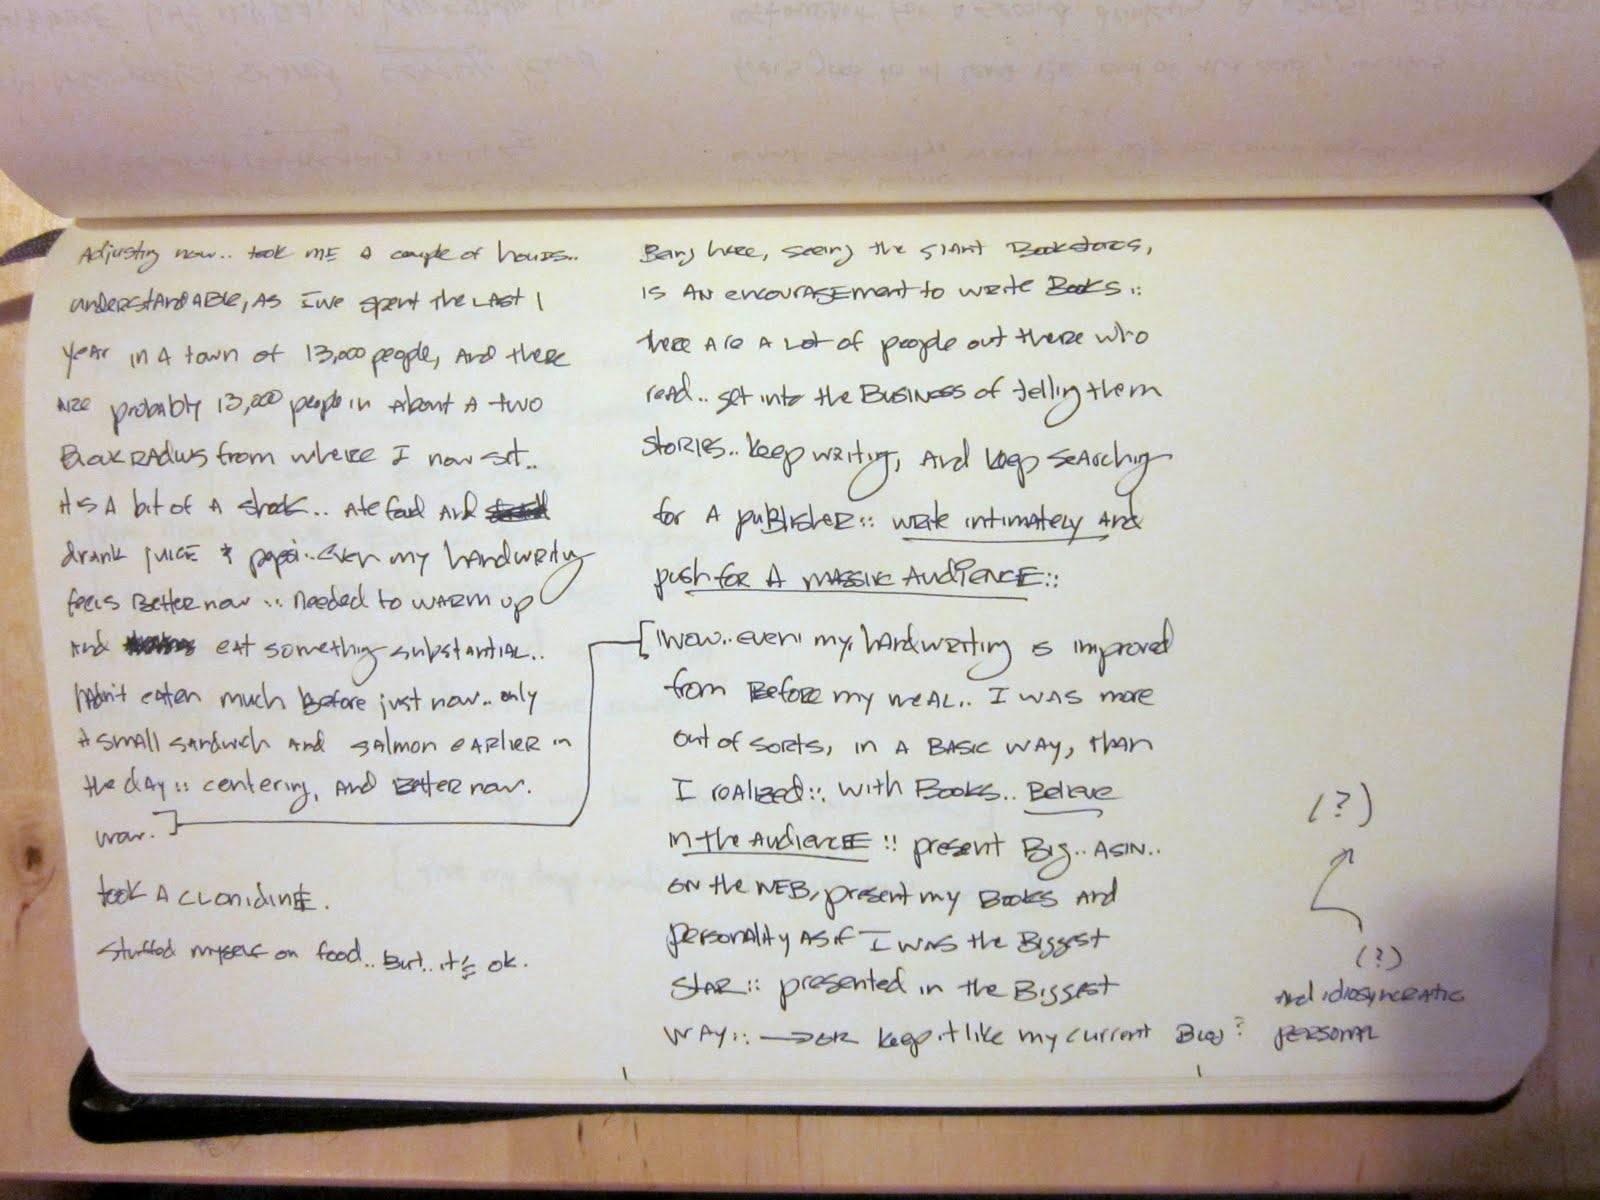 Adjusting now.. took me a couple of hours..
understandable, as I've spent the last 1
year in a town of 13,000 people, and there
are probably 13,000 people in about a two
block radius from where I now sit..
its a bit of a shock.. ate food and
drank juice & pepsi.. even my handwriting
feels better now :: needed to warm up
and eat something substantial..
hadn't eaten much before just now.. only
a small sandwich and salmon earlier in
the day :: centering, and better now.
wow. ]
took a clonidine.
stuffed myself on food.. but.. it's ok.
Being here, seeing the giant bookstores,
is an encouragement to write books ::
there are a lot of people out there who
read.. get into the business of telling them
stories.. keep writing, and keep searching
for a publisher :: write intimately and
push for a massive audience ::
[wow.. even my handwriting is improved
from before my meal.. I was more
out of sorts, in a basic way, than
I realized :: with books.. Believe
in the audience :: present big.. as in..
on the web, present my books and
personality as if I was the biggest
star :: presented in the biggest
way :: → or keep it like my current blog?
(?)
(?)
and idiosyncratic
personal